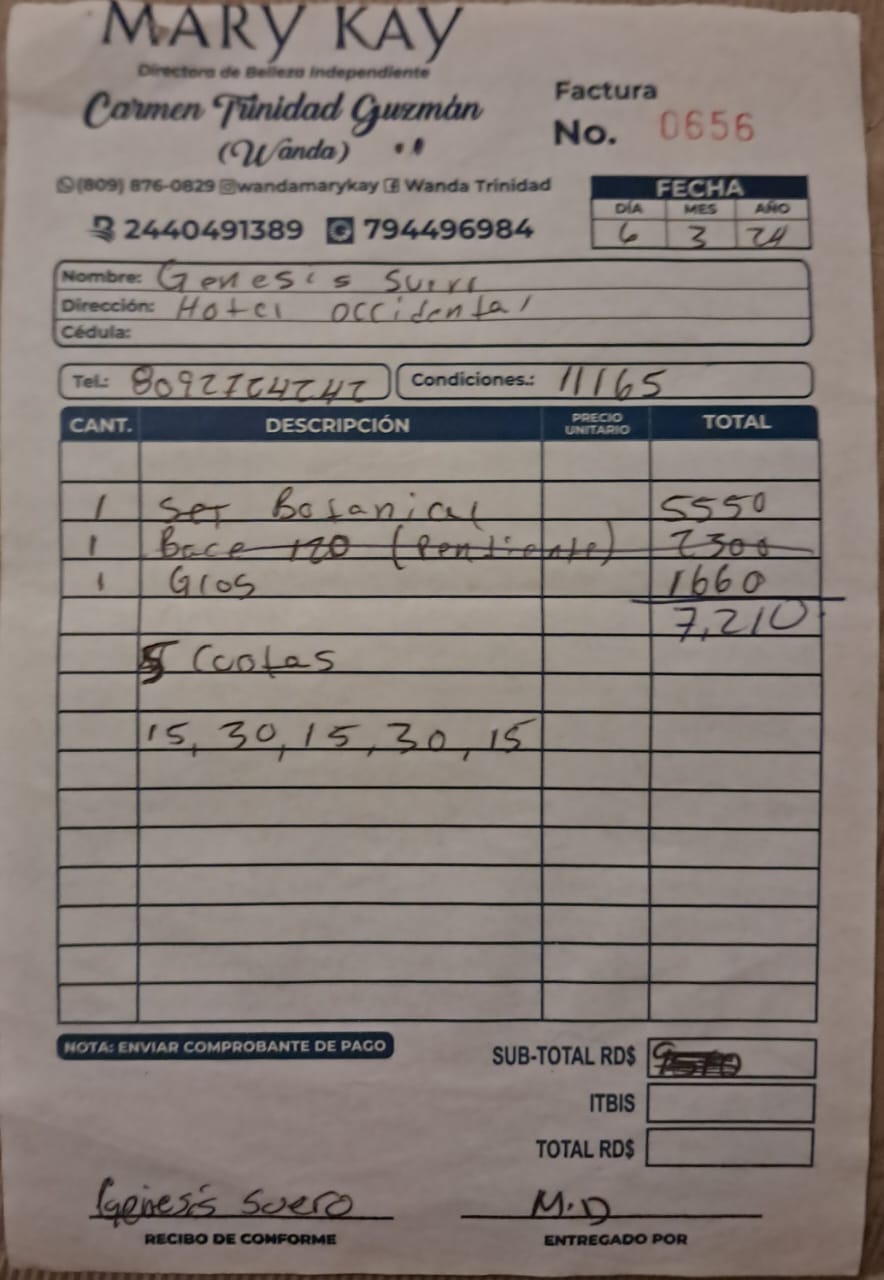 MARY KAY
Directora de Belleza Independiente
Carmen Trinidad Guzmán
(Wanda)
Factura
No. 0656
(809) 876-0829 wandamarykay Wanda Trinidad
2440491389 794496984
FECHA
DÍA MES AÑO
6 3 24
Nombre: Genesis
Dirección: Hotel occidental
Cédula:
Tel.: Condiciones.: 11165
CANT. DESCRIPCIÓN PRECIO UNITARIO TOTAL
1 Set Botanical 5550
1 Bace 120 (Pendiente) 2300
1 Glos 1660
7,210
5 Cuotas
15, 30, 15, 30, 15
NOTA: ENVIAR COMPROBANTE DE PAGO
SUB-TOTAL RD$
ITBIS
TOTAL RD$
Genesis Suero
RECIBO DE CONFORME
M.D
ENTREGADO POR